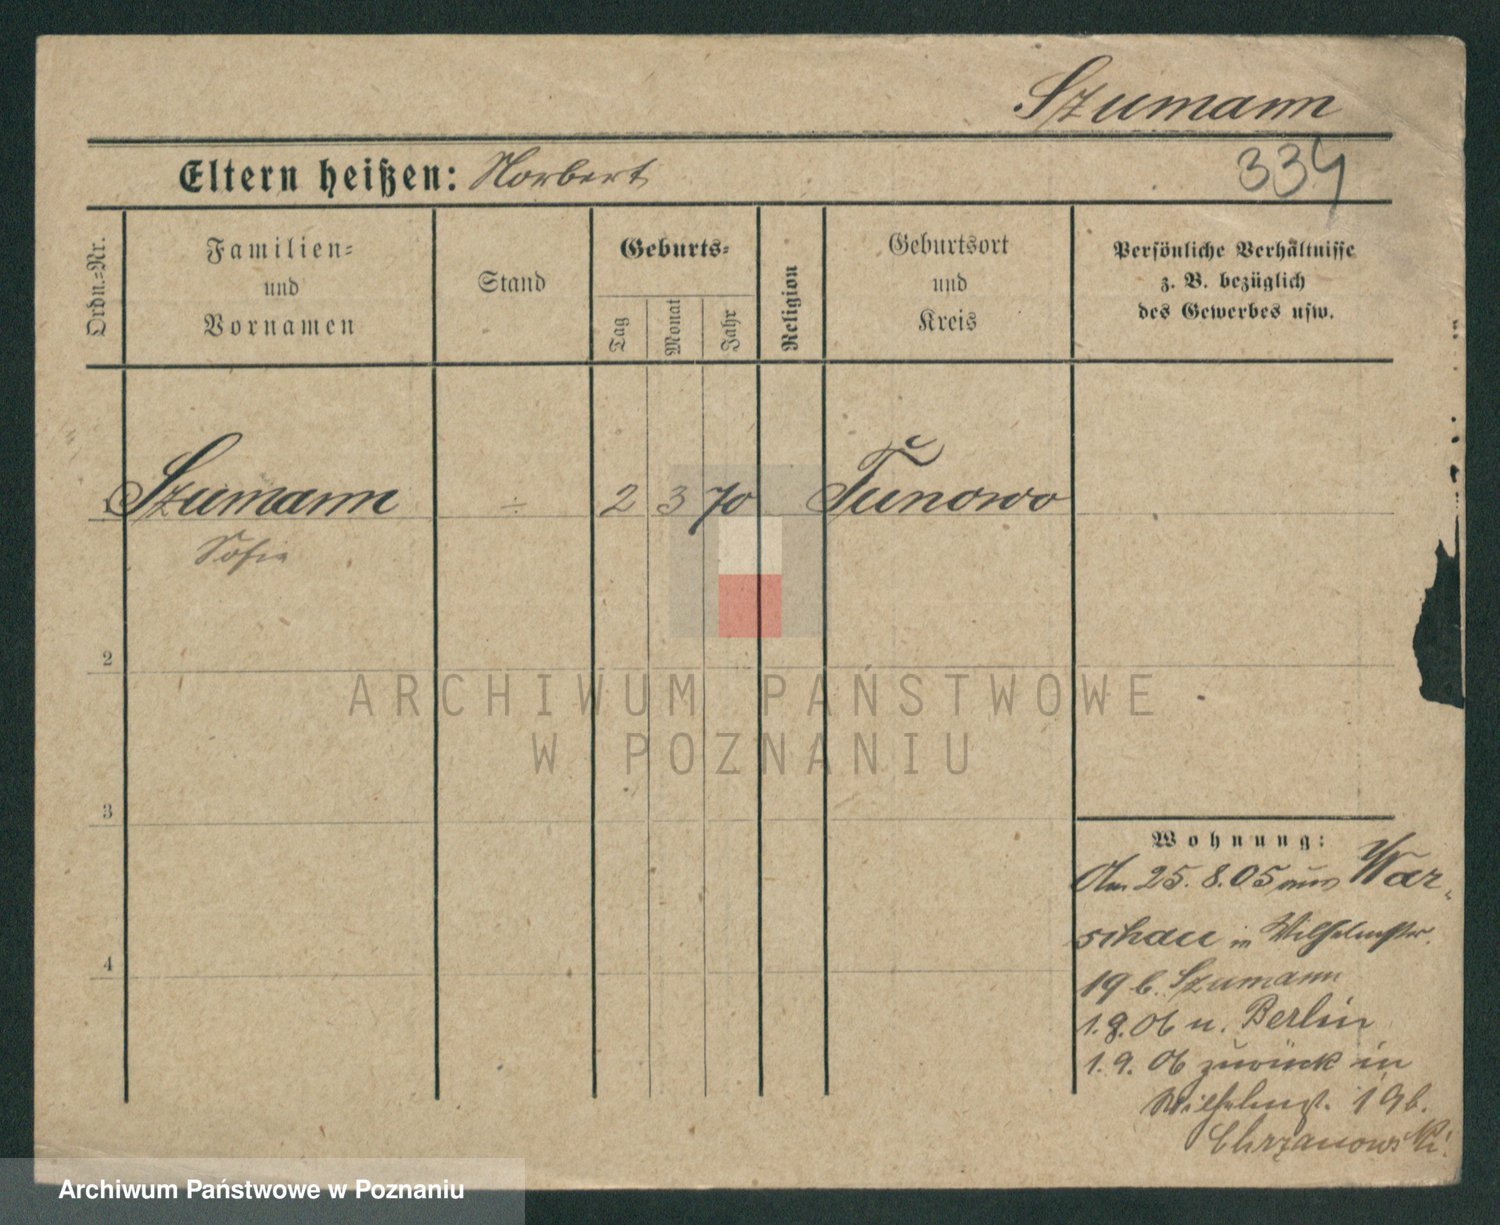 Szumann
Eltern heißen: Norbert
334
Ordn.-Nr.
Familien-
und
Vornamen
Stand
Geburts-
Tag
Monat
Jahr
Religion
Geburtsort
und
Kreis
Persönliche Verhältnisse
z. B. bezüglich
des Gewerbes usw.
Szumann ÷ 2 3 70 Tunowo
Sofie
2
ARCHIWUM PAŃSTWOWE
W POZNANIU
3
4
Wohnung:
Am 25.8.05 aus War-
schau in Wilhelmstr.
19 b. Szumann
1.9.06 n. Berlin
1.9.06 zurück in
Wilhelmst. 19 b.
Chrzanowski.
Archiwum Państwowe w Poznaniu